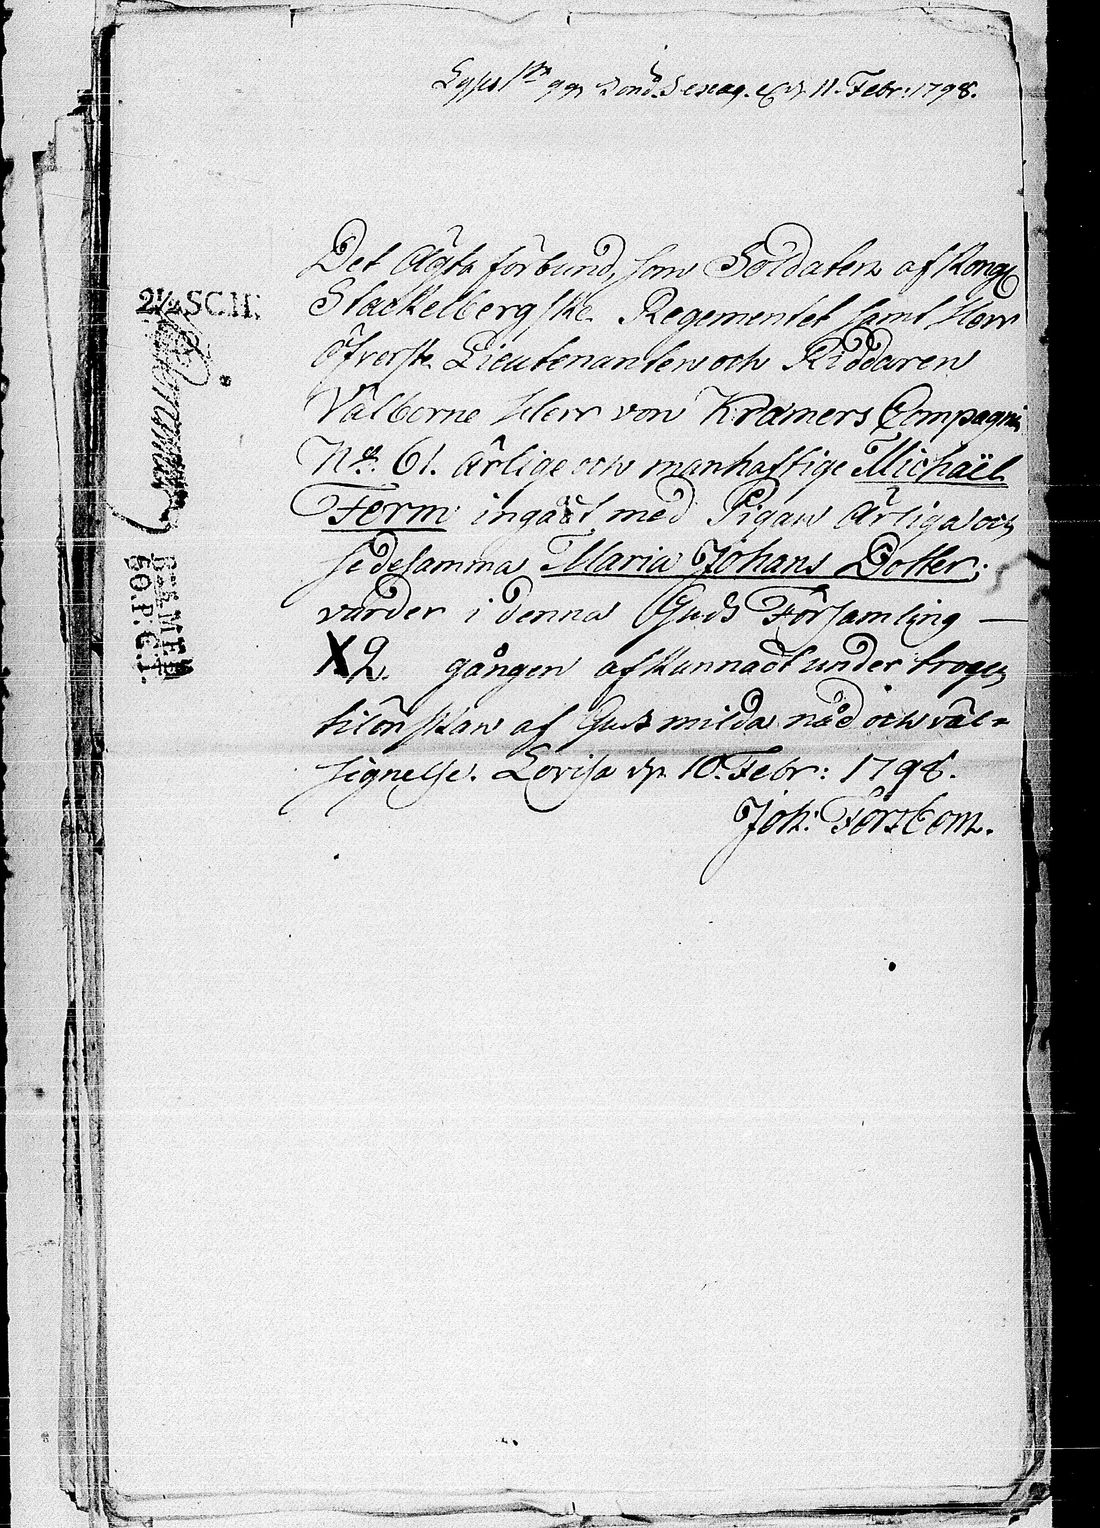 Lystes 1sta gg. Sönd. Sexag. d. 11. Febr. 1798.
Det Ägta förbund, som Soldaten af Kongl
Stackelbergske Regementet samt Herr
Öfverste Lieutenanten och Riddaren
Välborne Herr von Kræmers Compagni
No. 61. Ärlige och manhaftige Michaël
Ferm ingådt med Pigan Ärliga och
sedesamma Maria Johans Dotter;
varder i denna Guds Församling —
X2. gången afkunnadt under trogen
tilönskan af Guds milda nåd och väl=
signelse. Lovisa d. 10. Febr: 1798.
Joh: Forsbom.
2½ SC.H.